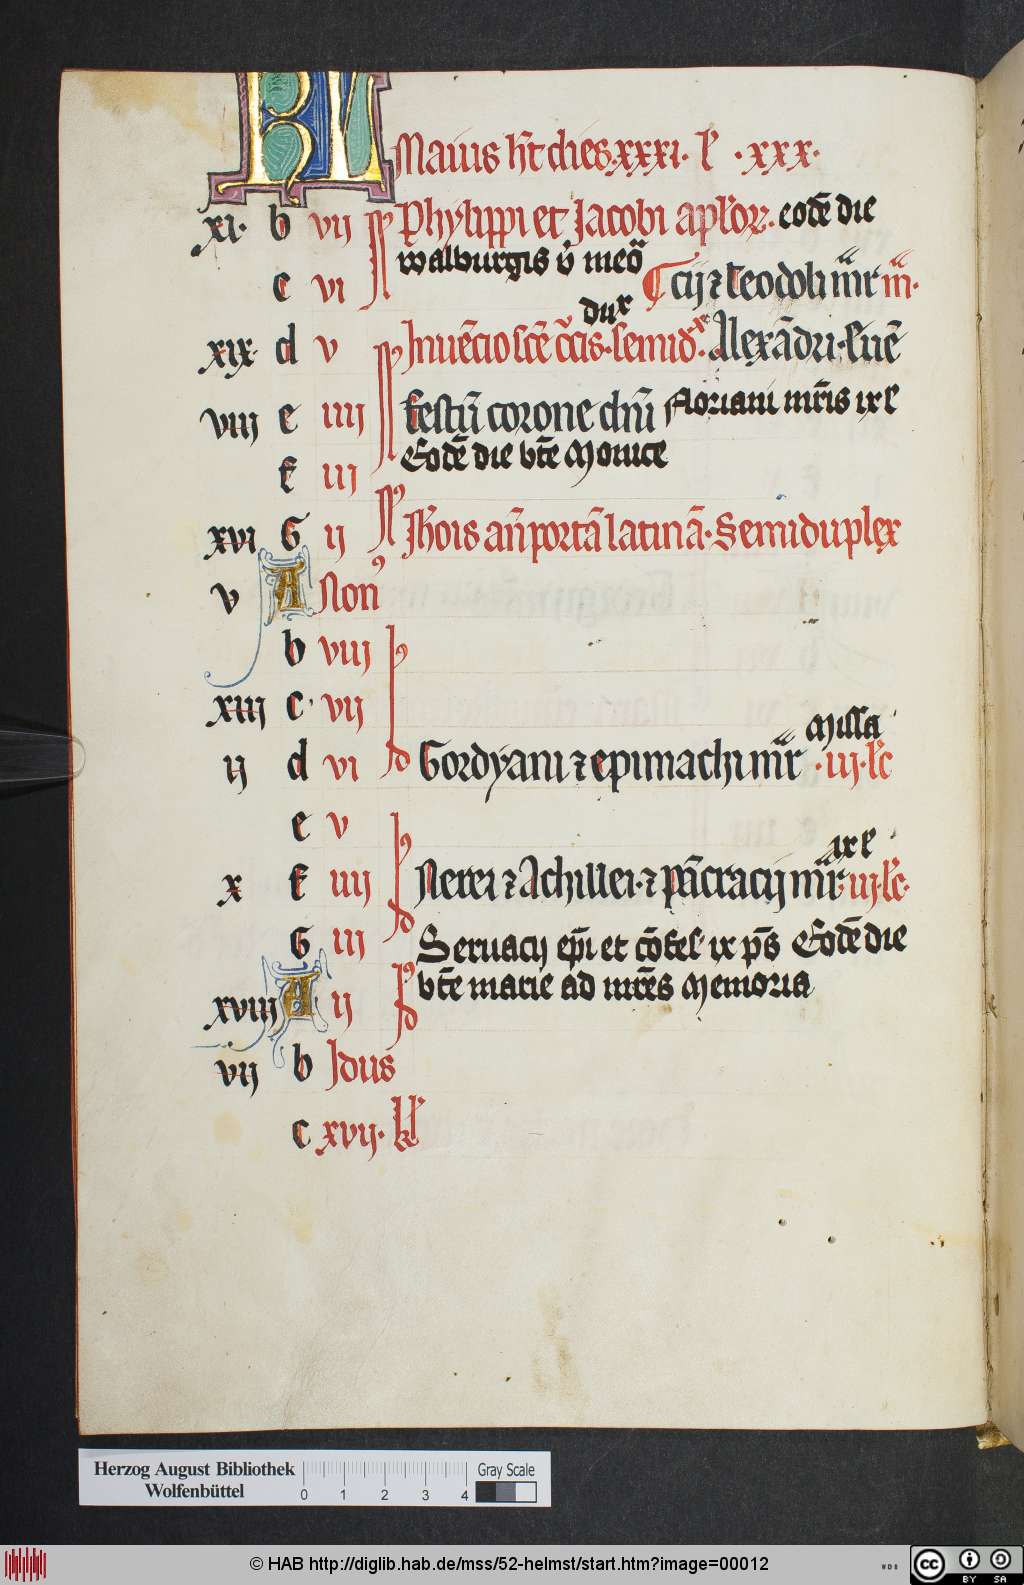 KL
Maius h̄t dies·xxxi· l̄ ·xxx·
xi· b vij Phylippi et Jacobi apl̄oꝝ· eodē die
walburgis v̾ meō
c vi cij ⁊ teodoli m̄r m̄·
dux
xix· d v Inuēcio scē c̄cis·semid᷒· Alexādri·euē
viij e iiij festū corone dn̄i floriani mr̄is ix l
Eodē die bt̄e Monice
f iij
xvi G ij Jh̄ois an̄ portā latinā· Semiduplex
v A Non᷒
b viij
xiij c· vij
Missa
ij d vi Gordyani ⁊ epimachi m̄r ·iij·lc̄
e v
ix l
x f iiij Nerei ⁊ Achillei·⁊ pācracij m̄r·iij·lc̄·
G iij Seruacij ep̄i et cōfes᷒ ix ps̄ Eodē die
bt̄e marie ad mr̄es Memoria
xviij A ij
vij b Idus
c xvij· kl̄
Herzog August Bibliothek
Wolfenbüttel
0 1 2 3 4
Gray Scale
© HAB http://diglib.hab.de/mss/52-helmst/start.htm?image=00012
WDB
cc BY SA